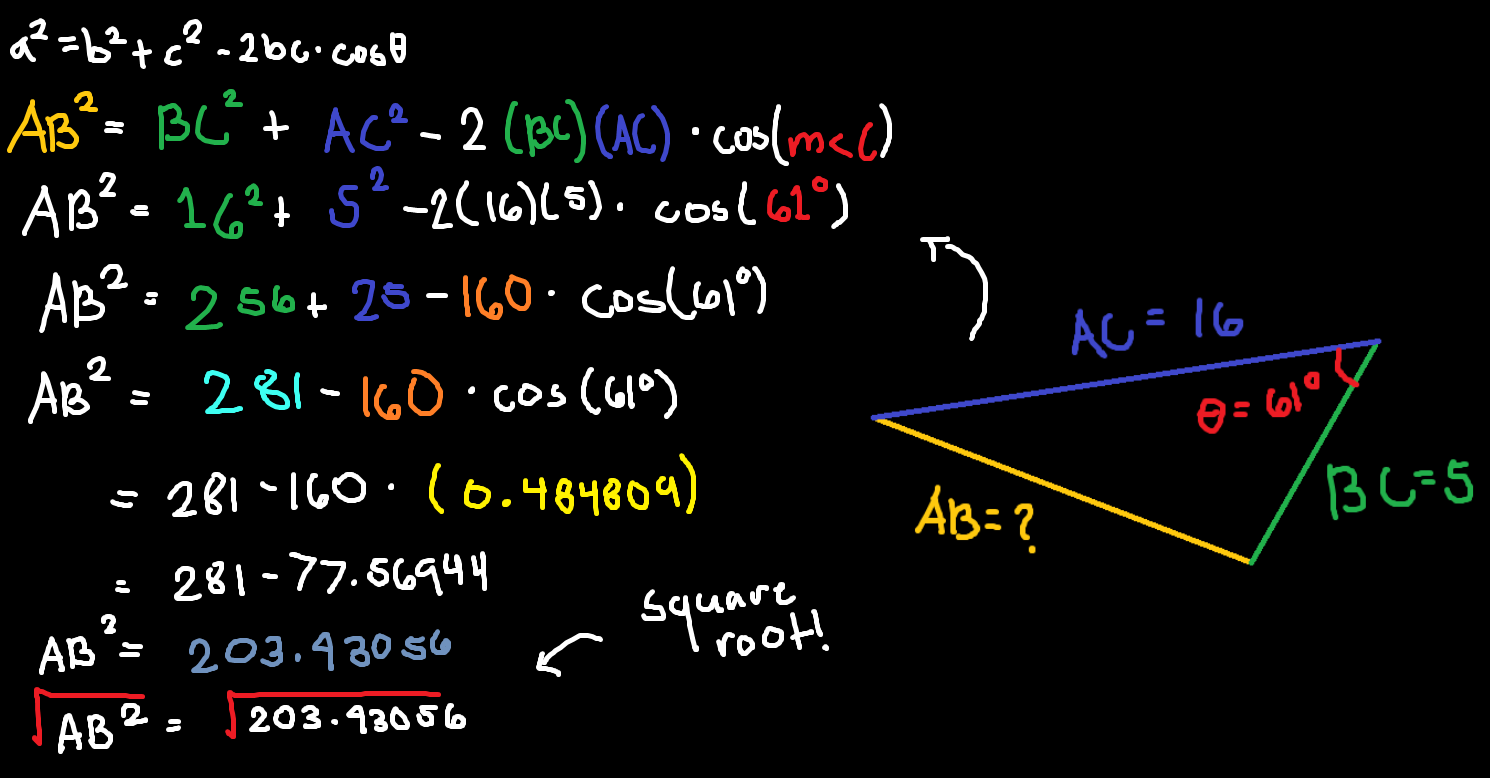 a²=b²+c²-2bc·cosθ
AB²= BC² + AC² - 2 (BC)(AC) · cos(m<C)
AB² = 16² + 5² -2(16)(5) · cos(61°)
AB² = 256 + 25 - 160 · cos(61°)
AB² = 281 - 160 · cos(61°)
= 281 - 160 · (0.484809)
= 281 - 77.56944
AB² = 203.43056
√AB² = √203.43056
square
root!
AC = 16
θ = 61°
BC=5
AB=?